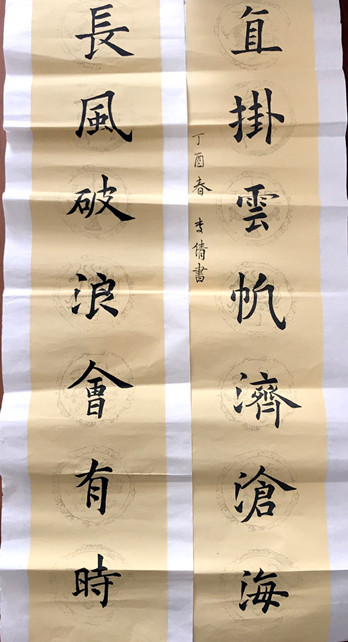 長風破浪會有時
直掛雲帆濟滄海
丁酉春 李倩書